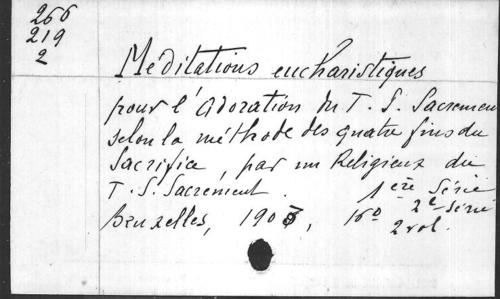 266
219
2
Méditations eucharistiques
pour l'Adoration du T. S. Sacremen
selon la méthode des quatre fins du
Sacrifice, par un Religieux du
T. S. Sacrement. 1ère Série
Bruxelles, 1903, 16º 2e Série
2 vol.